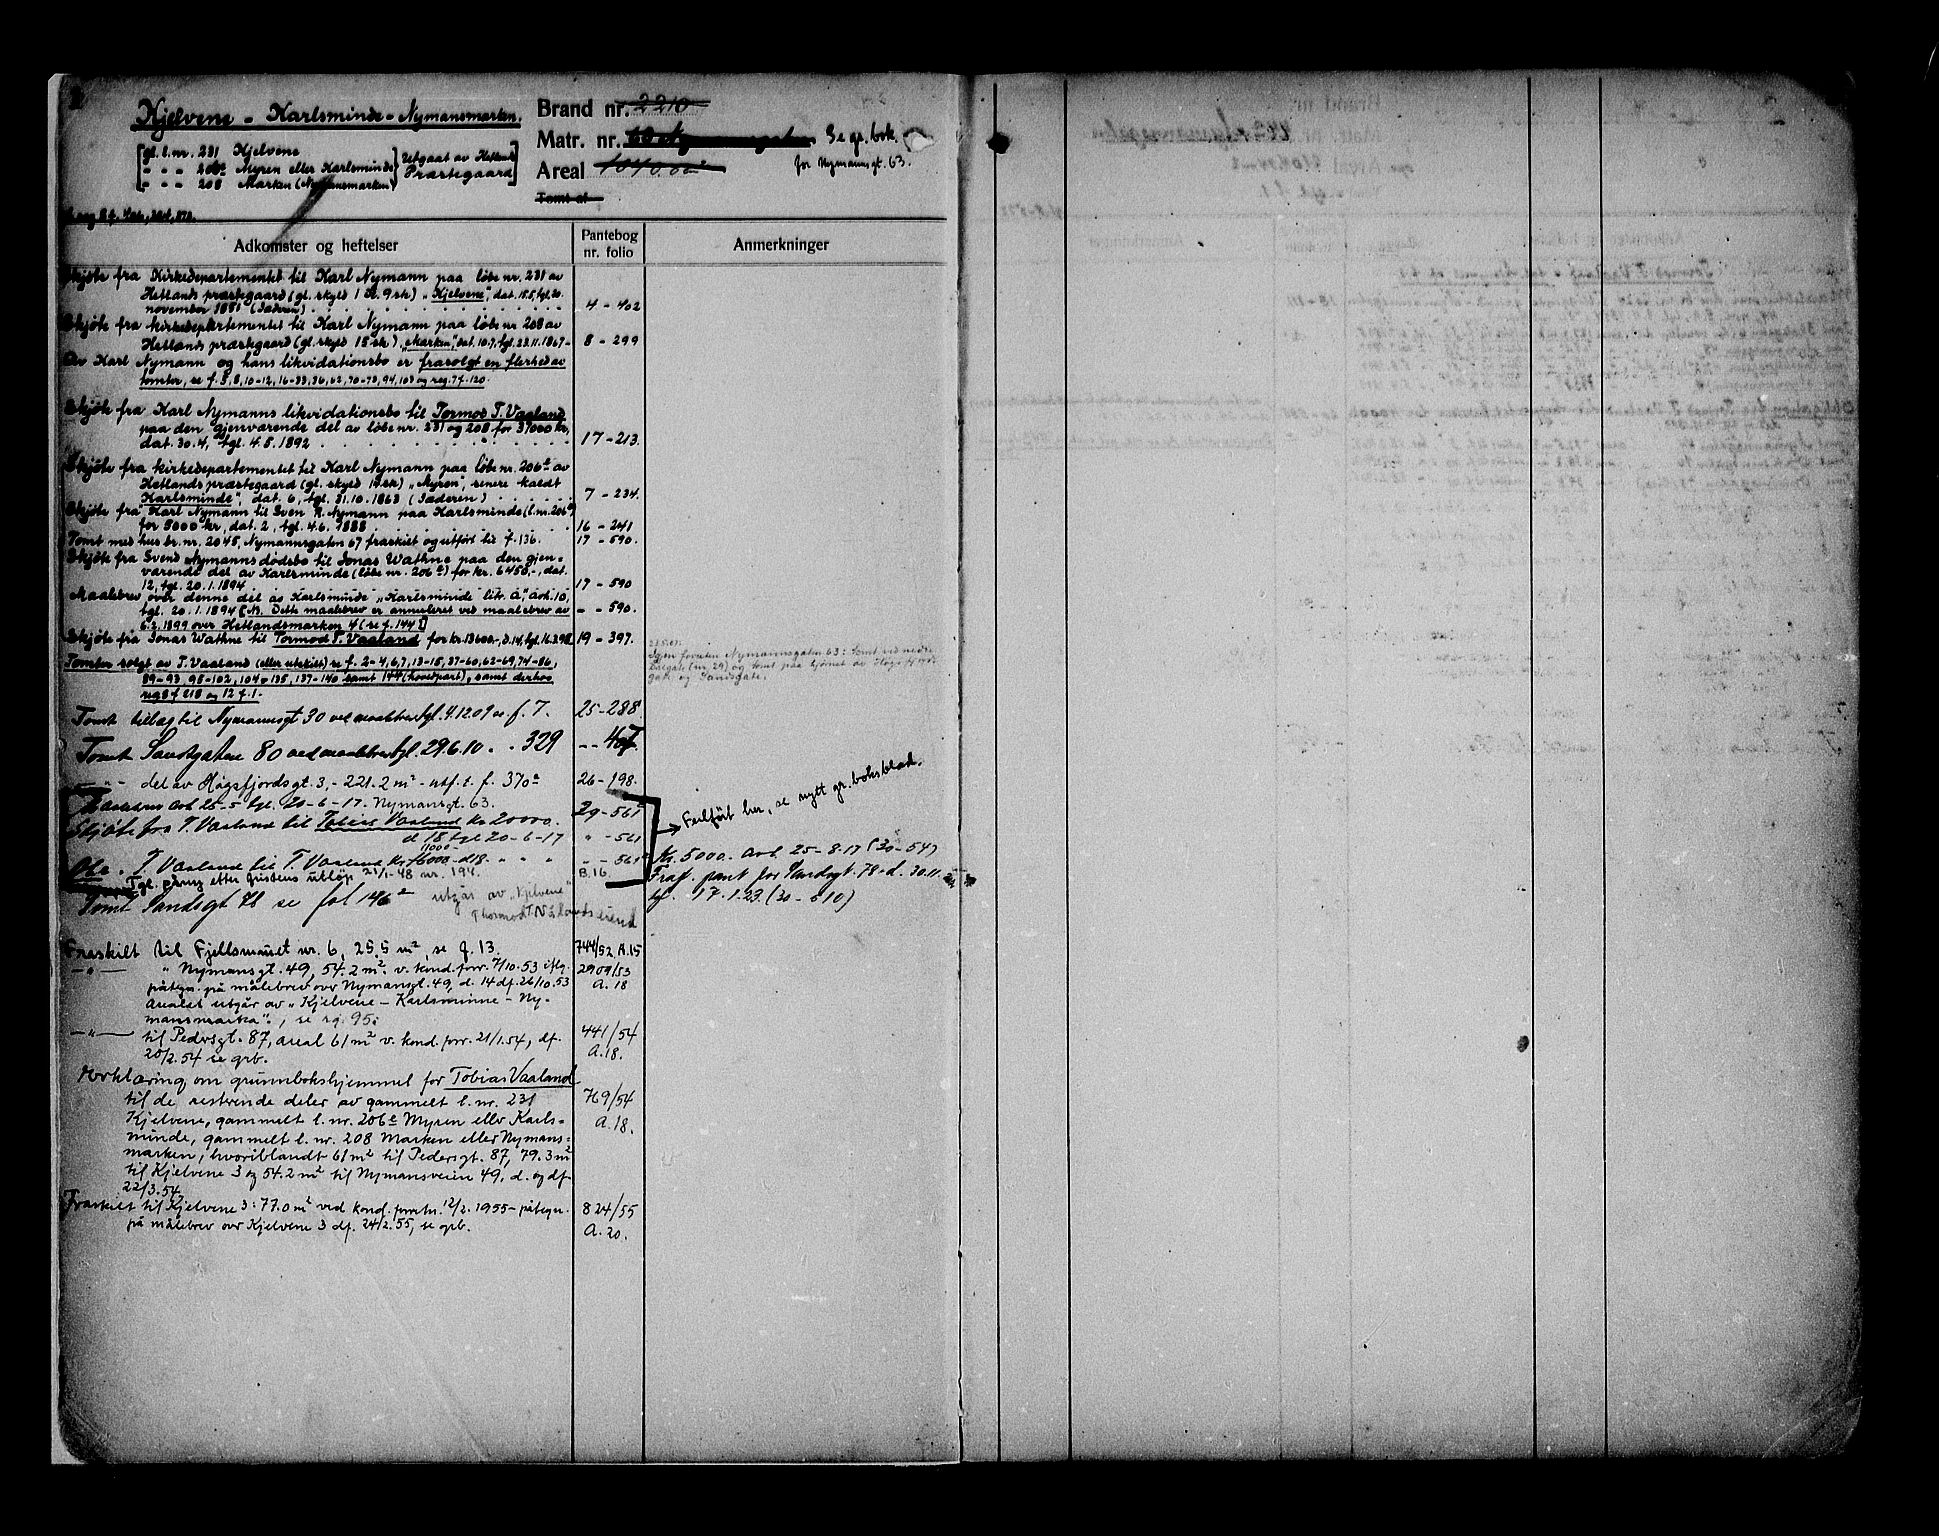 Kjelvene - Karlsminde - Nymansmarken.
Brand nr. 2210
Matr. nr. Se gr.bok.
for Nymannsgt. 63.
Areal 1040.00
Tomt af
gl. l. nr. 231 Kjelvene
" " " 206a Myren eller Karlsminde
" " " 208 Marken (Nymansmarken)
Utgaat av Hetlands
Præstegaard
Adkomster og heftelser
Pantebog
nr. folio
Anmerkninger
Skjøte fra Kirkedepartementet til Karl Nymann paa løbe nr. 231 av
Hetlands præstegaard (gl. skyld 1 9 sk) "Kjelvene", dat. 15.5, tgl. 20.
november 1851 (Jæderen) 4 - 402
Skjøte fra kirkedepartementet til Karl Nymann paa løbe nr 208 av
Hetlands præstegaard (gl. skyld 15 sk), "Marken", dat. 10.7, tgl. 23.11.1867 - 8 - 299
Av Karl Nymann og hans likvidationsbo er frasolgt en flerhed av
tomter, se f. 5, 8, 10-12, 16-33, 36, 62, 70-73, 94, 103 og reg. 7 f. 120.
Skjøte fra Karl Nymanns likvidationsbo til Tormod T. Vaaland
paa den gjenværende del av løbe nr. 231 og 208 for 37000 kr,
dat. 30.4, tgl. 4.5. 1892 17 - 213.
Skjøte fra kirkedepartementet til Karl Nymann paa løbe nr. 206a av
Hetlands præstegaard (gl. skyld 19 sk) "Myren", senere kaldt
Karlsminde", dat. 6, tgl. 31.10.1863 (Jæderen) 7 - 234.
Skjøte fra Karl Nymann til Sven R. Nymann paa Karlsminde (l. nr. 206a)
for 8000 kr, dat. 2, tgl. 4.6. 1888 16 - 241
Tomt med hus br. nr. 2045, Nymannsgaten 67 fraskilt og utført til f. 136. 17 - 590.
Skjøte fra Svend Nymanns dødsbo til Jonas Wathne paa den gjen-
værende del av Karlsminde (løbe nr. 206a) for kr. 6450,-, dat.
12, tgl. 20.1.1894 17 - 590
Maalebrev over denne del av Karlsminde "Karlsminde litr. a", avh. 10,
tgl. 20.1.1894 [N. Dette maalebrev er annulleret ved maalebrev av - - 590.
6.2.1899 over Hetlandsmarken 4 (se f. 144)]
Skjøte fra Jonas Wathne til Tormod T. Vaaland for kr. 13600.-, d. 14, tgl. 16.3.98 19 - 397.
Igjen foruten Nymannsgaten 63: Tomt ved nedre
gate (nr. 29) og tomt paa hjørnet av
gate og Sandsgate.
Tomter solgt av T. Vaaland (eller utskilt) se f. 2-4, 6, 7, 13-15, 37-60, 62-69, 74-86,
89-93, 95-102, 104-135, 137-140 samt 144 (hovedpart), samt derhos
reg 8 f 218 og 12 f. 1.
Tomt tillag til Nymannsgt 30 ved maalebrev tgl. 4.12.09 se f. 7. 25-288
Tomt Sandsgaten 80 ved maalebrev tgl. 29.6.10. . 329 -- 467
" - del av Høgsfjordsgt. 3, - 221.2 m² - utf. t. f. 370a 26-198.
avh 25-5 tgl. 20-6-17. Nymansgt. 63. 29-561
Skjøte fra T. Vaaland til Tobias Vaaland Kr 20000.
d 18 tgl 20-6-17 " -561
→ Feilført her, se nytt gr. boksblad.
Obl. T Vaaland til T. Vaaland Kr 16000 - d 18 - " " " " - 561
11000
Kr. 5000. avl. 25-8-17 (30-54)
Tgl. påny efter fristens utløp 21/1-48 nr. 194. B. 16.
Fraf. pant for Sandsgt. 78 - d. 30.11.
tgl. 17.1.23. (30-610)
Tomt Sandsgt 78 se fol 146a utgår av "Kjelvene"
Fraskilt til Fjellsmuet nr. 6, 25.5 m², se f. 13. 744/52 A.15
-"- " Nymansgt. 49, 54.2 m². v. kond. forr. 7/10.53 iflg. 2909/53
påtegn. på målebrev over Nymansgt. 49, d. 14 df. 26/10.53 A. 18
Arealet utgår av "Kjelvene - Karlsminne - Ny-
mansmarka"., se rg. 95.
-"- til Pedersgt. 87, areal 61 m² v. kond. forr. 21/1.54, df. 441/54
20/2.54 se grb. A.18.
Erklæring om grunnbokshjemmel for Tobias Vaaland
til de resterende deler av gammelt l. nr. 231 769/54
Kjelvene, gammelt l. nr. 206a Myren eller Karls- A.18.
minde, gammelt l. nr. 208 Marken eller Nymans-
marken, hvoriblandt 61 m² til Pedersgt. 87, 79.3 m²
til Kjelvene 3 og 54.2 m² til Nymansveien 49, d. og df.
22/3.54.
Fraskilt til Kjelvene 3: 77.0 m² ved kond. forretn. 12/2. 1955 - påtegn. 824/55
på målebrev over Kjelvene 3 df. 24/2.55, se grb. A. 20.